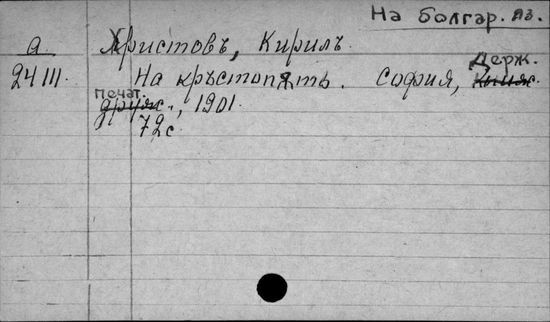 На болгар. яз.
а Христовъ, Кирилъ.
24111. На кръстопѫть. София, Держ.
печат., 1901.
72 с.